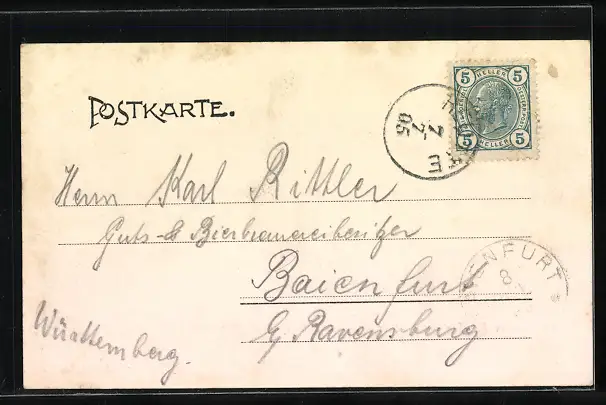 POSTKARTE.
5 HELLER 5
5 HELLER 5
7
05
E
Herrn Karl Rittler
Guts- & Bierbrauereibesitzer
Baienfurt
ENFURT
8
b/ Ravensburg
Württemberg.